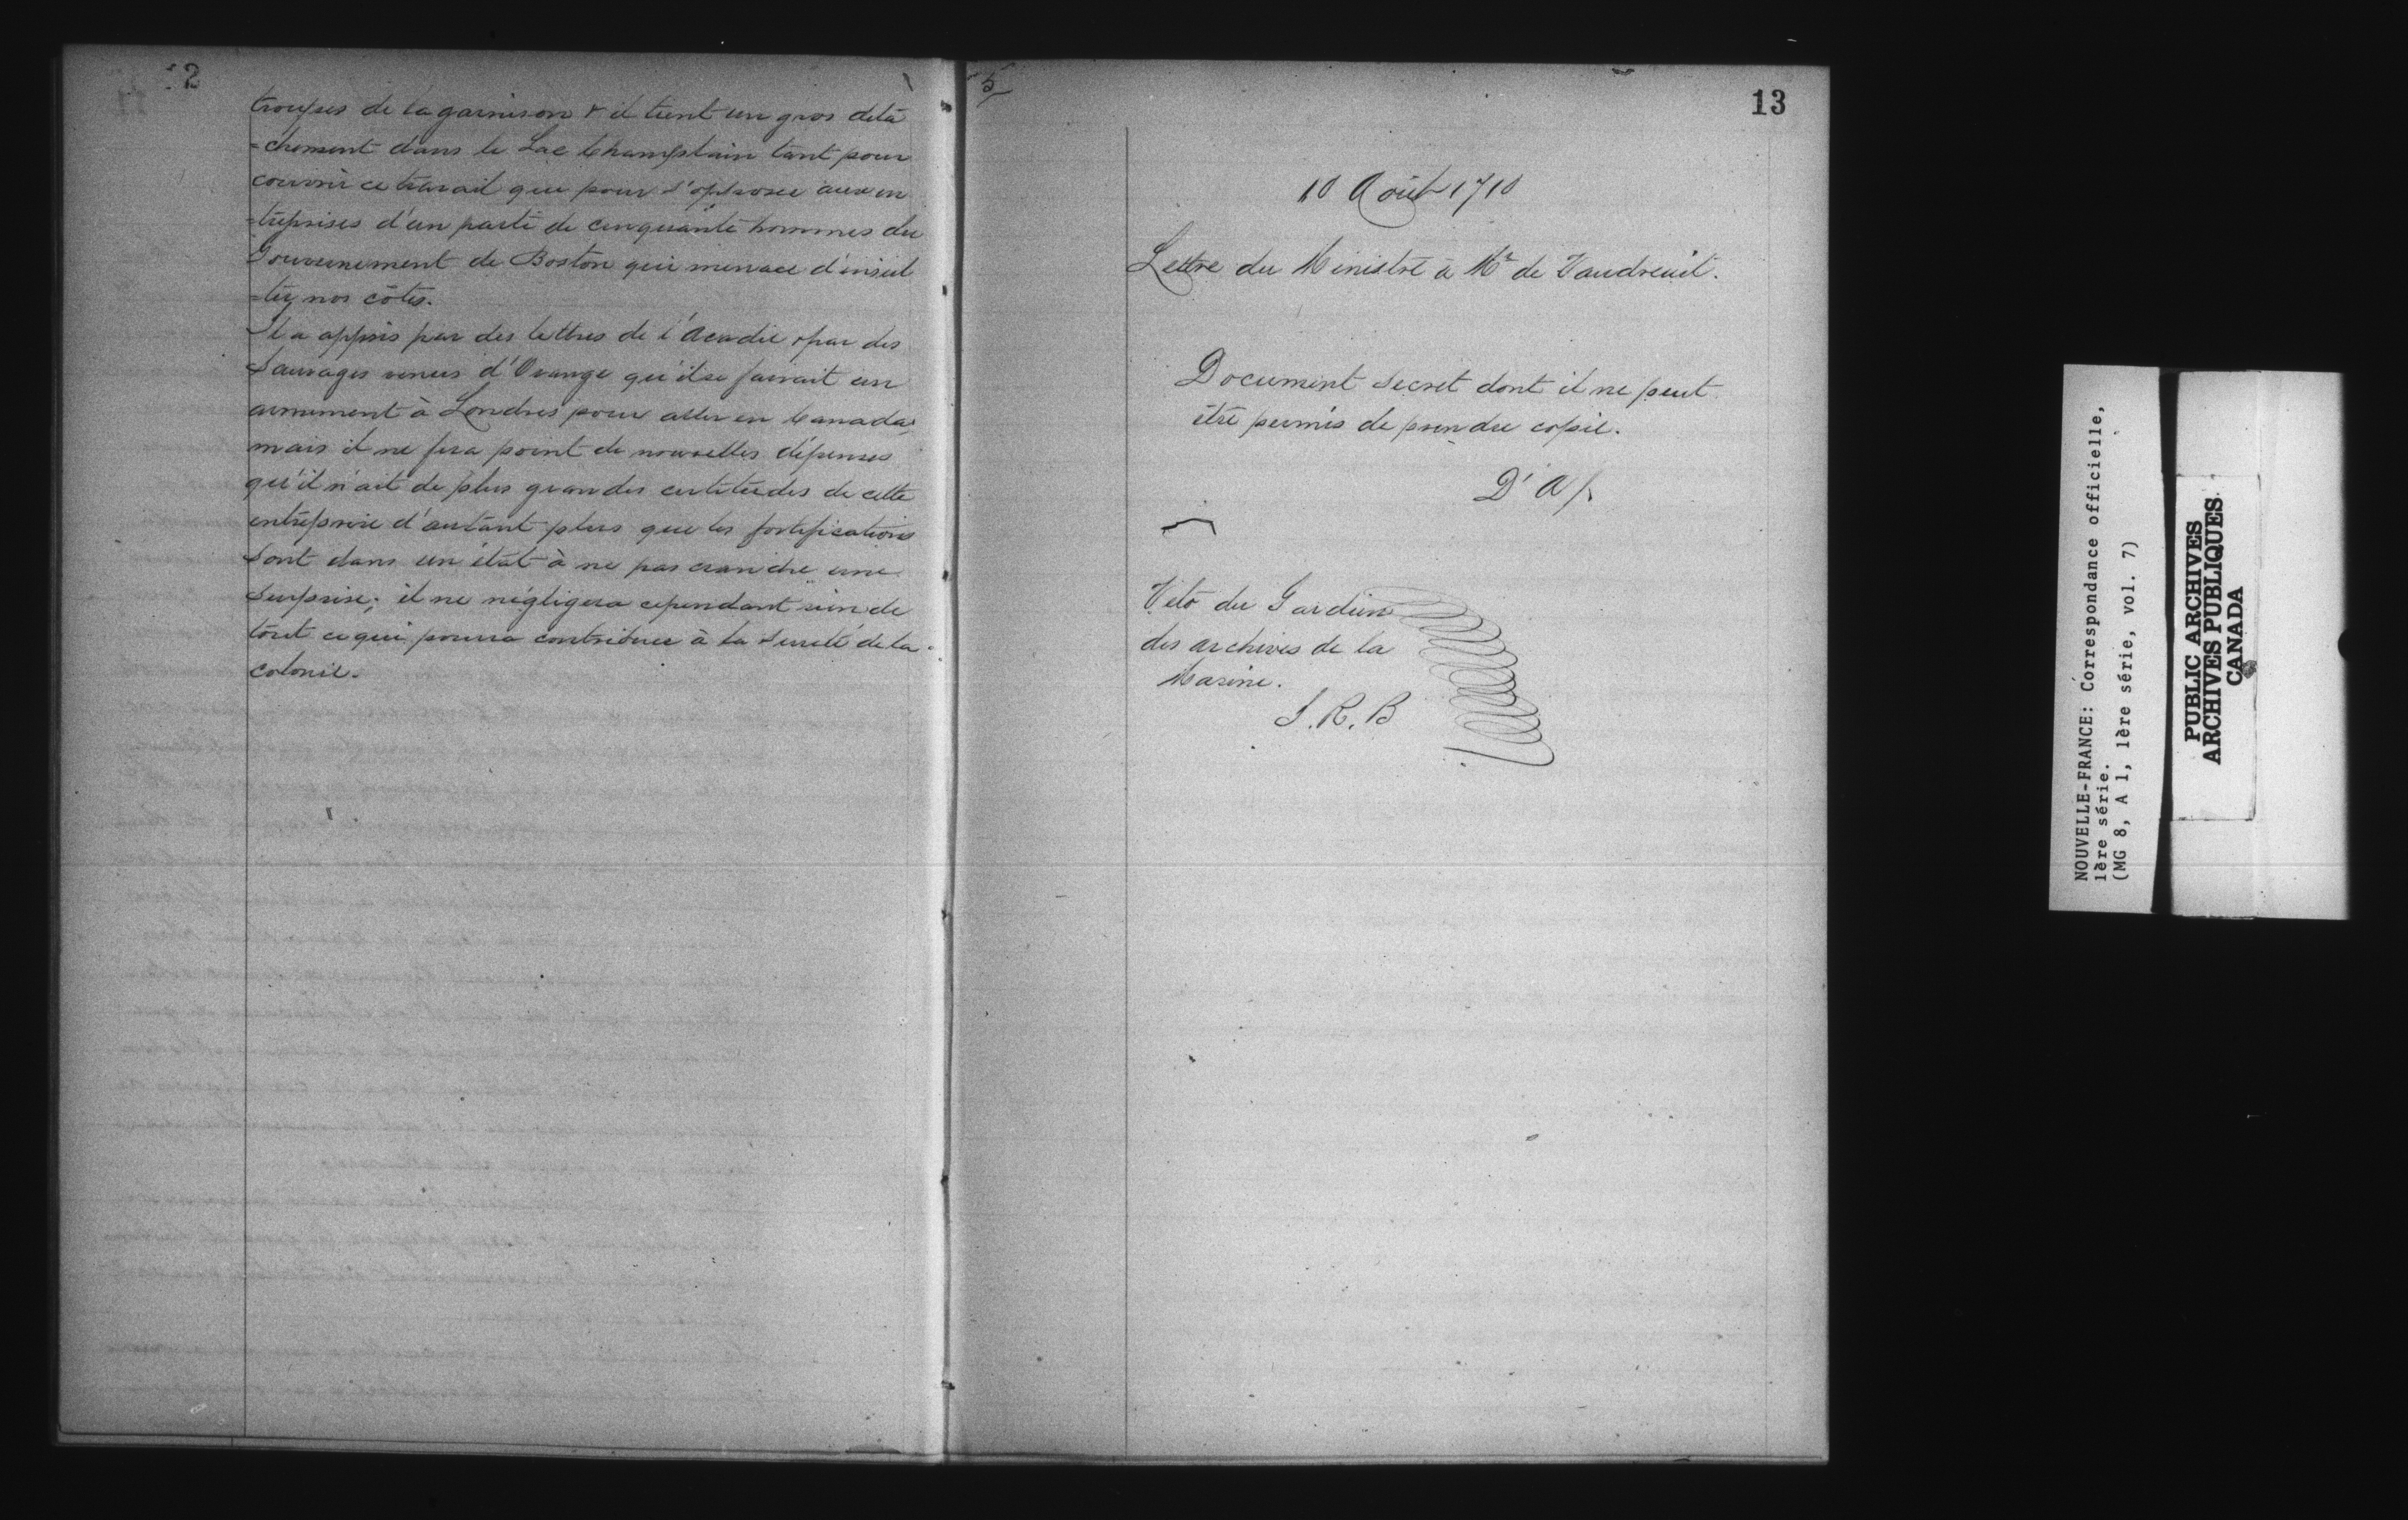 12
troupes de la garnison & il tient un gros déta
=chement dans le Lac Champlain tant pour
couvrir ce travail que pour s'opposer aux en
=treprises d'un parti de cinquante hommes du
Gouvernement de Boston qui menace d'insul
=ter nos côtes.
Il a appris par des lettres de l'Acadie & par des
Sauvages venus d'Orange qu'il se faisait un
armement à Londres pour aller en Canada;
mais il ne fera point de nouvelles dépenses
qu'il n'ait de plus grandes certitudes de cette
entreprise d'autant plus que les fortifications
sont dans un état à ne pas craindre une
surprise; il ne négligera cependant rien de
tout ce qui pourra contribuer à la sureté de la
colonie.
5
13
10 Août 1710
Lettre du Ministre à Mr de Vaudreuil.
Document secret dont il ne peut
être permis de prendre copie.
D'A
Véto du Gardien
des archives de la
Marine.
J. R. B
NOUVELLE-FRANCE: Correspondance officielle,
1ère série.
(MG 8, A 1, 1ère série, vol. 7)
PUBLIC ARCHIVES
ARCHIVES PUBLIQUES
CANADA